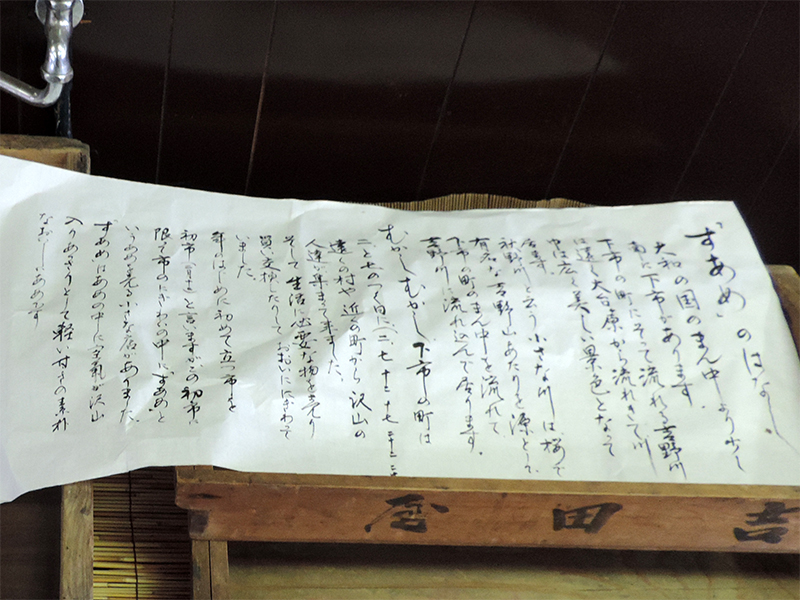 「ずあめ」のはなし。
大和の国のまん中より少し
南に下市があります。
下市の町にそって流れる吉野川
は遠く大台原から流れきて川
巾は広く美しい景色となって
居ります。
秋野川と云う小さな川は桜で
有名な吉野山あたりを源として
下市の町のまん中を流れて
吉野川に流れ込んで居ります。
むかしむかし下市の町は
二と七のつく日に、二、七、十二、十七、二十二、二
遠くの村や近くの町から沢山の
人達が集まって来ました。
そして生活に必要な物を売り
買い交換したりしておおいににぎわって
いました。
年のはじめに初めて立つ市を
初市 と言いますがこの初市に
限って市のにぎわいの中にずあめと
いうあめを売る小さな店がありました。
ずあめはあめの中に空気が沢山
入りあっさりとして軽い甘さの素朴
なおいしいあめです
吉田屋